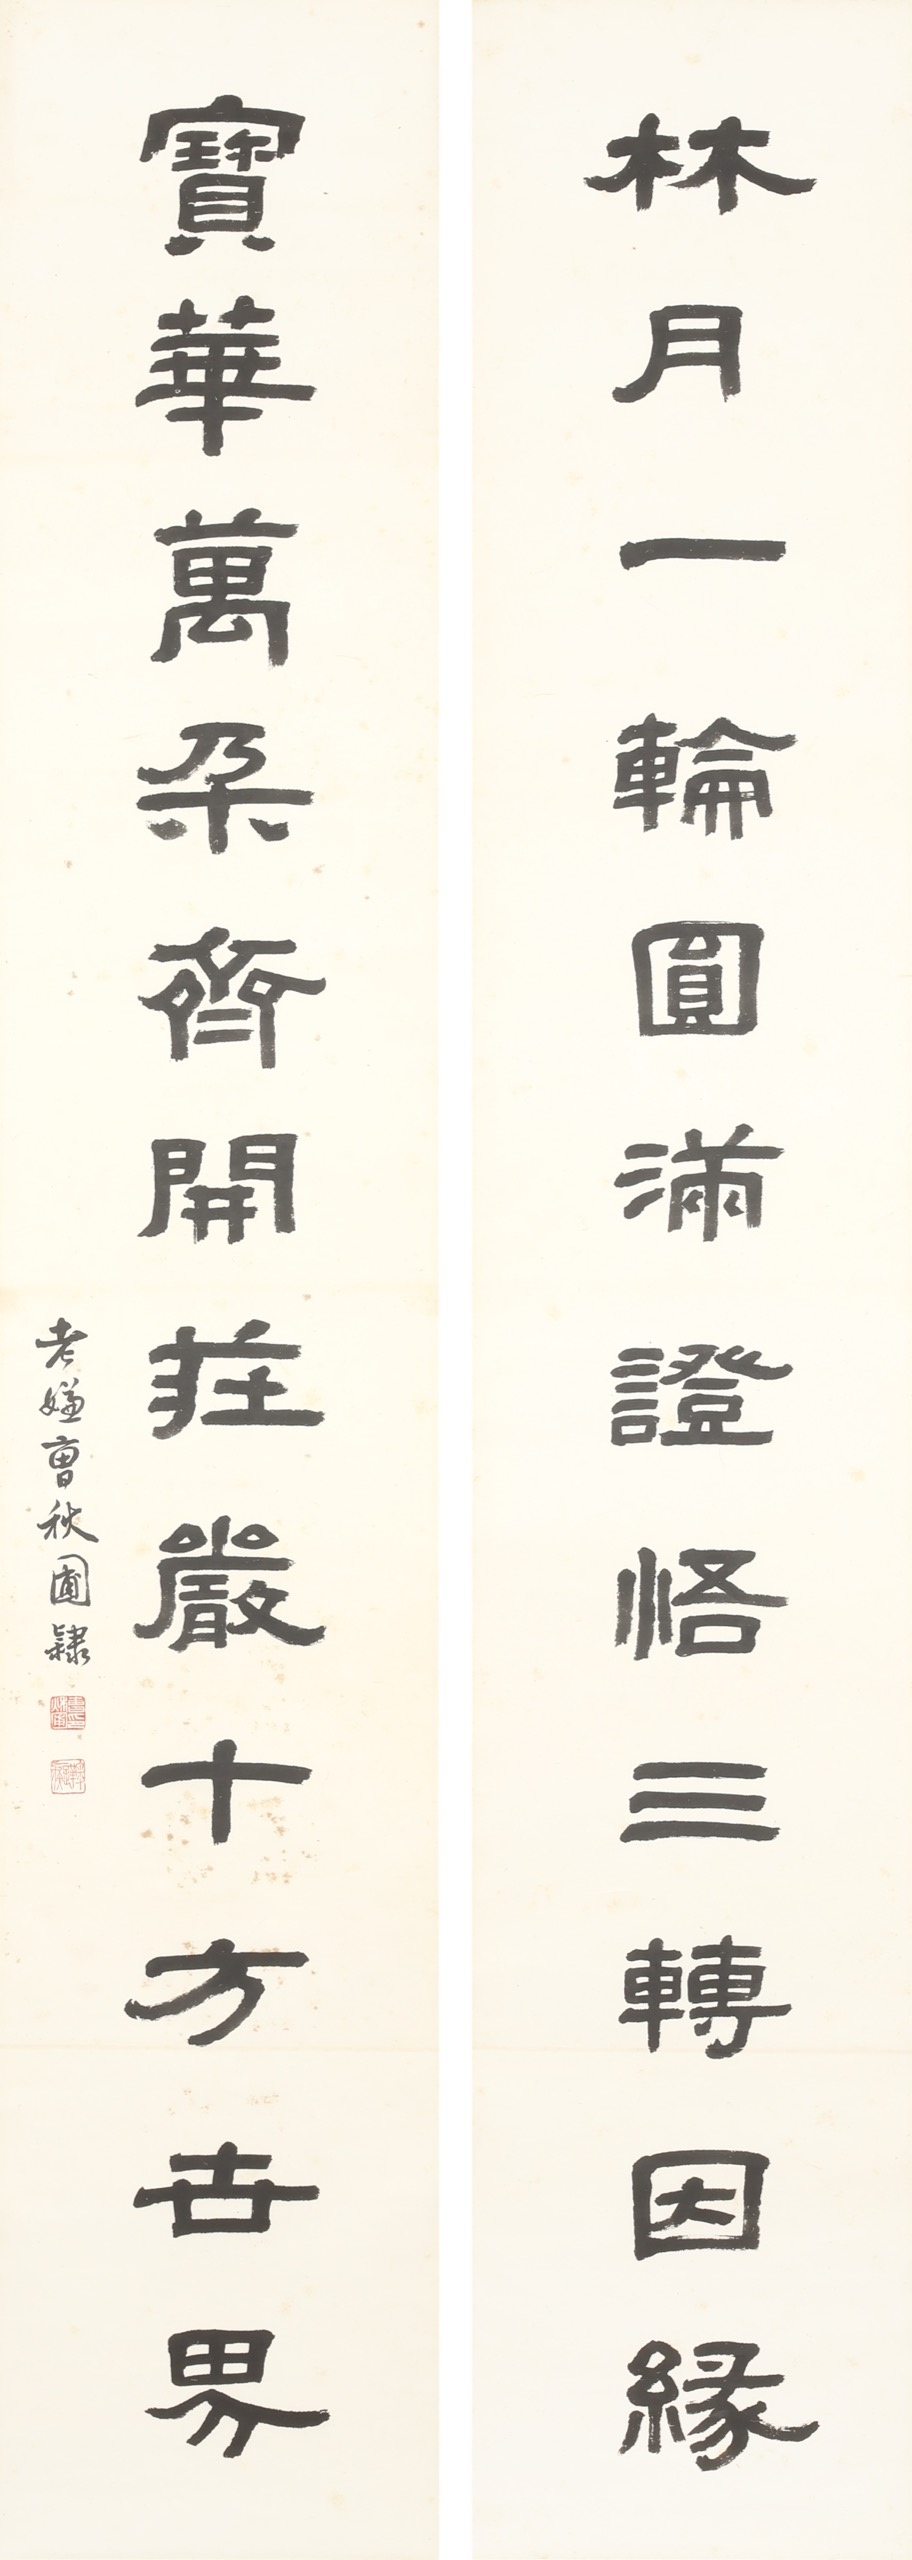 林月一輪圓滿證悟三轉因緣
寶華萬朵齊開莊嚴十方世界
老嫌曹秋圃隸